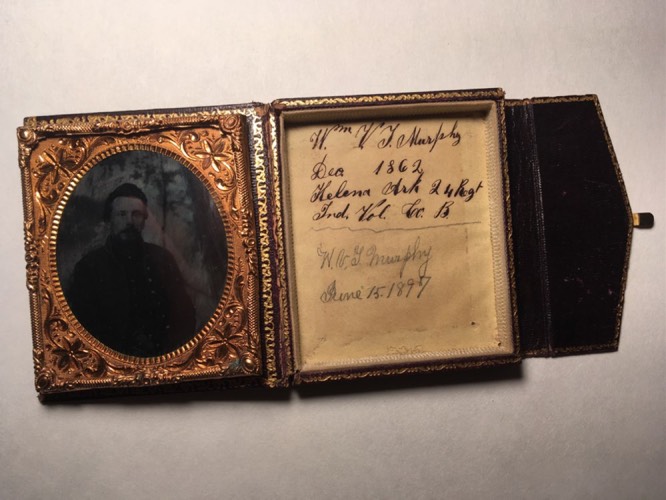 Wm V T. Murphy
Dec 1862
Helena Ark 24 Regt
Ind. Vol. Co. B
W. V. T Murphy
June 15 1897